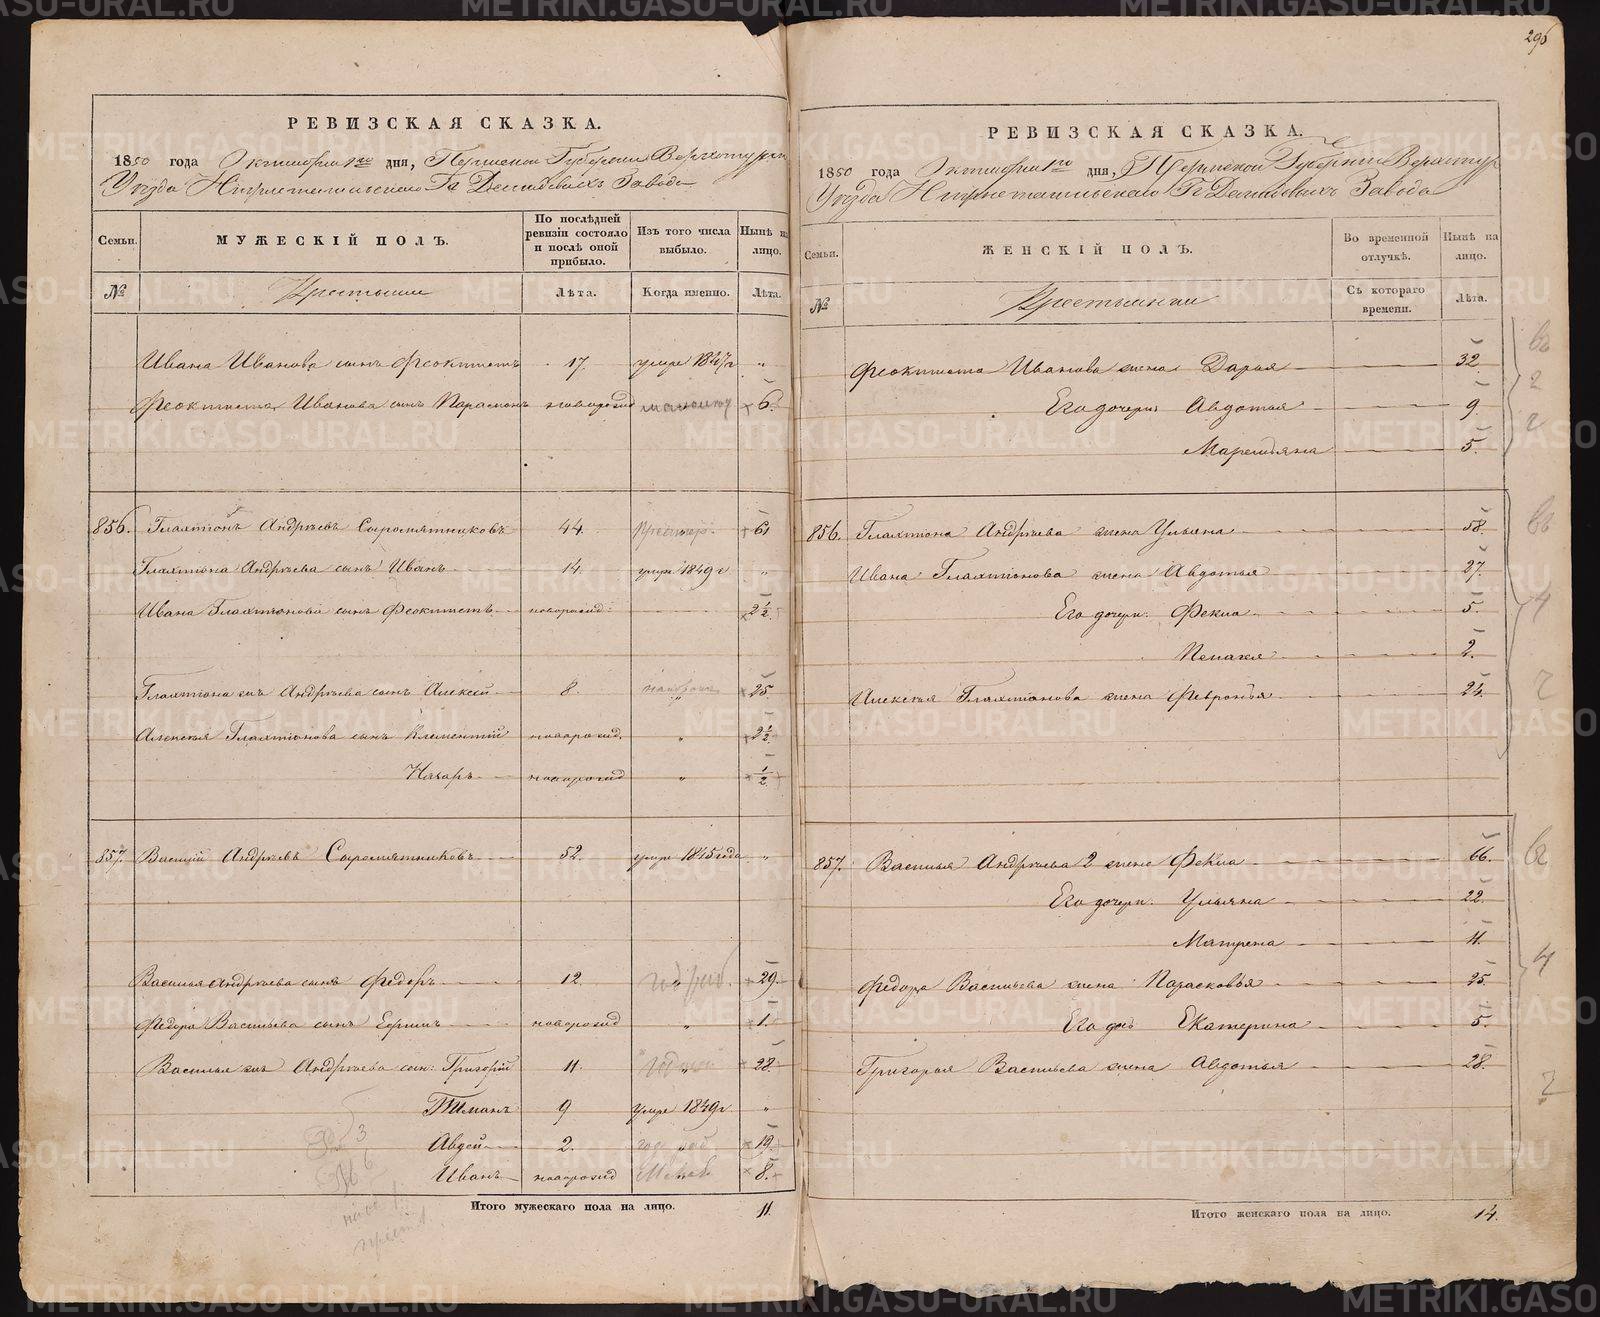 296
РЕВИЗСКАЯ СКАЗКА.
1850 года Октября 1го дня, Пермской Губернии Верхотур
Уезда Нижнетагильскаго Гг Демидовых Завода
Семьи. МУЖЕСКІЙ ПОЛЪ. По послѣдней ревизіи состояло и послѣ оной прибыло. Изъ того числа выбыло. Нынѣ на лицо.
№ Крестьяне Лѣта. Когда именно. Лѣта.
Ивана Иванова сынъ Феоктистъ 17. умре 1847 г "
Феоктиста Иванова сынъ Парамонъ новорожд 6.
856. Галахтіонъ Андреевъ Сыромятниковъ 44. 61
Галахтіона Андреева сынъ Иванъ 14. умре 1849 г "
Ивана Галахтіонова сынъ Феоктистъ новорожд: 2 1/2.
Галахтіона Андреева сынъ Алексей 8. " 25
Алексея Галахтіонова сынъ Климентій новорожд. " 2 1/2.
Назаръ новорожд " 1/2
857. Василій Андреевъ Сыромятниковъ 52. умре 1845 года "
Василья Андреева сынъ Федоръ 12. " 29.
Федора Васильева сынъ новорожд " 1.
Василья Андреева сын: Григорій 11. " 28.
9 умре 1849 г "
Авдей 2. " 19.
Иванъ новорожд 8.
Итого мужескаго пола на лицо. 11.
РЕВИЗСКАЯ СКАЗКА.
1850 года Октября 1го дня, Пермской Губернии Верхотур
Уезда Нижнетагильскаго Гг Демидовыхъ Завода
Семьи. ЖЕНСКІЙ ПОЛЪ. Во временной отлучкѣ. Нынѣ на лицо.
№ Крестьянки Съ котораго времени. Лѣта.
Феоктиста Иванова жена Дарья 32
Его дочери: Авдотья 9
Маремьяна 5.
856. Галахтіона Андреева жена Ульяна 58.
Ивана Галахтіонова жена Авдотья 27.
Его дочери: Фекла 5.
Пелагея 2.
Алексея Галахтіонова жена Февронья 24.
857. Василья Андреева 2 жена Фекла 66.
Его дочери: Ульяна 22.
Матрена 11.
Федора Васильева жена Парасковья 25.
Его дочь Екатерина 5.
Григорья Васильева жена Авдотья 28.
Итого женскаго пола на лицо. 14.
METRIKI.GASO-URAL.RU